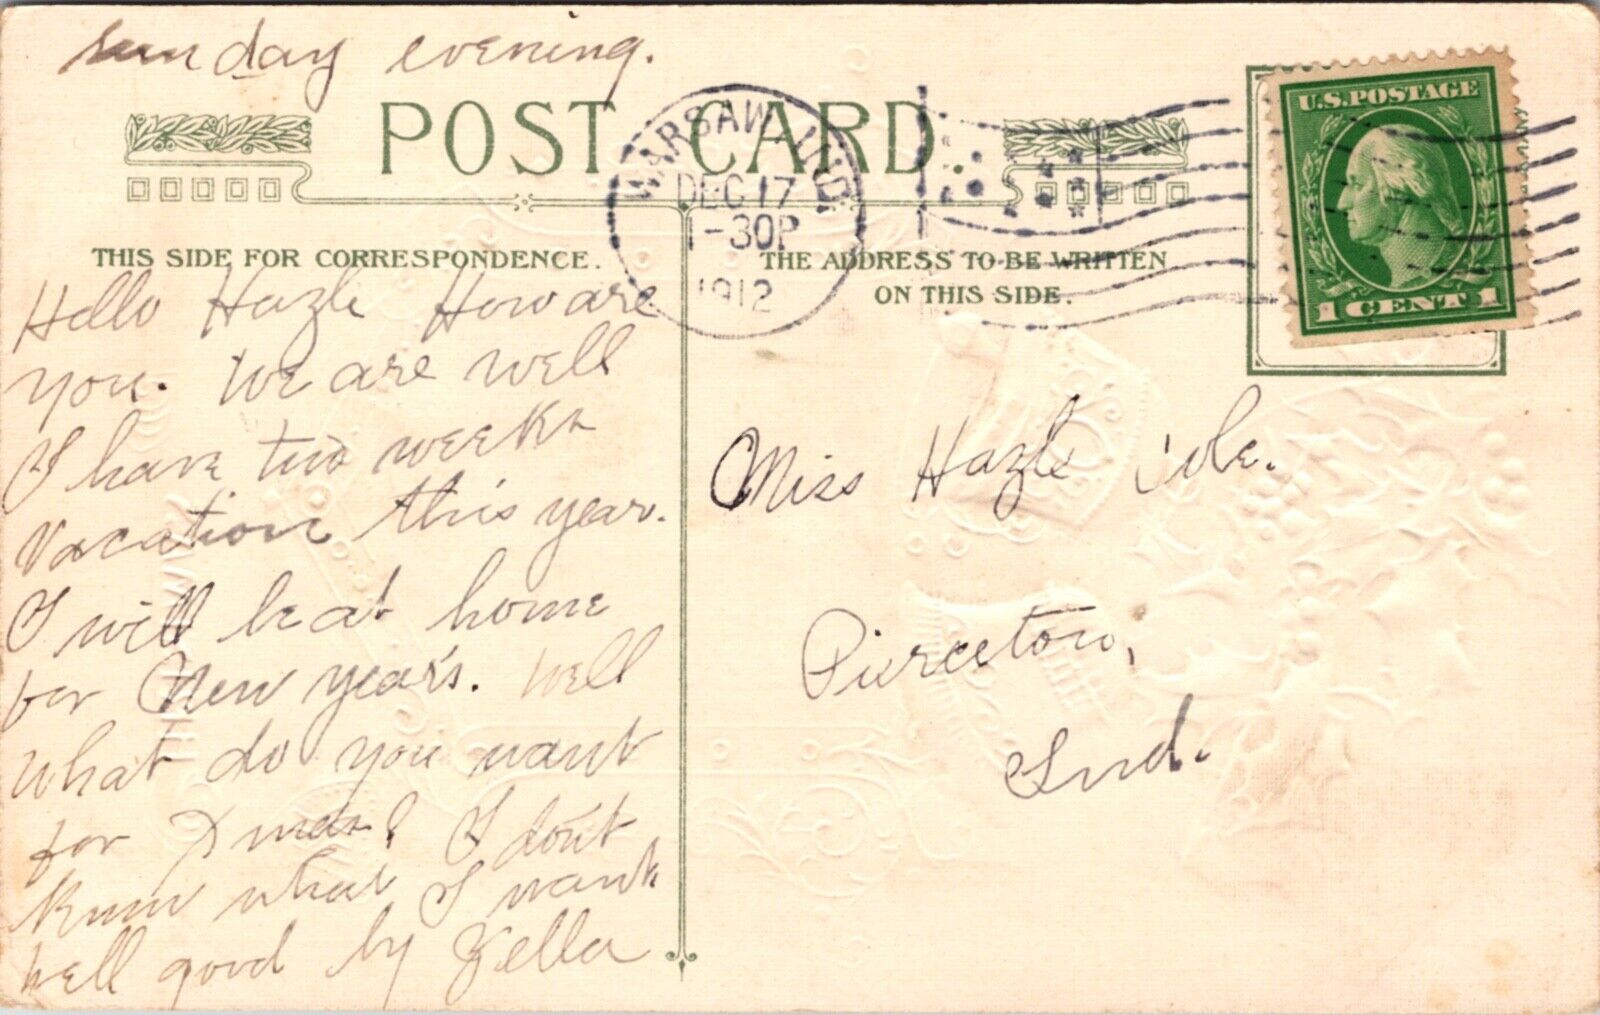 Sunday evening.
POST CARD.
WARSAW, IND.
DEC 17
1-30P
1912
U.S. POSTAGE
1 CENT 1
THIS SIDE FOR CORRESPONDENCE.
THE ADDRESS TO BE WRITTEN
ON THIS SIDE.
Hello Hazle How are
you. We are well
I have two weeks
vacation this year.
I will be at home
for New year's. Well
what do you want
for Xmas? I don't
know what I want.
well good by Zella
Miss Hazle Cole.
Pierceton,
Ind.